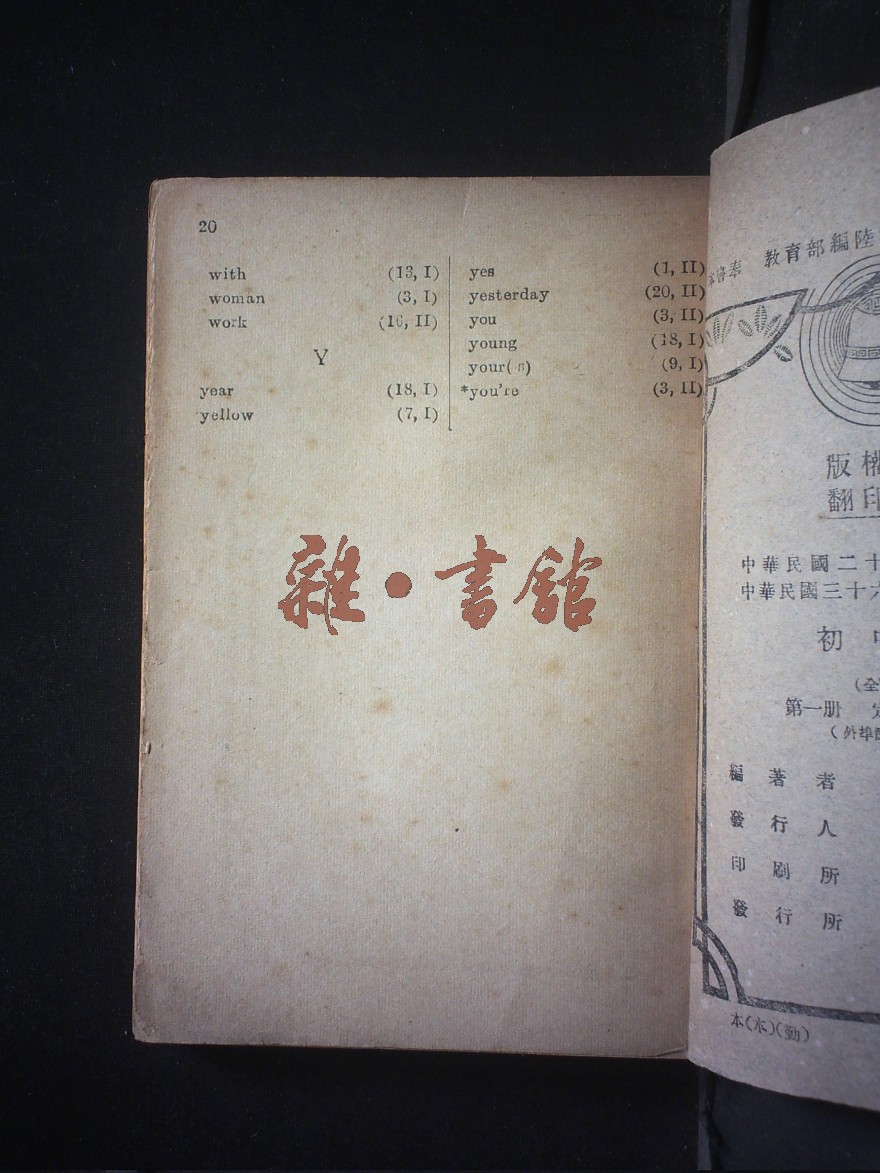 20
with (13, I)
woman (3, I)
work (16, II)
Y
year (18, I)
yellow (7, I)
yes (1, II)
yesterday (20, II)
you (3, II)
young (18, I)
your (9, I)
*you're (3, II)
雜·書館
教育部編陸
版權
翻印
中華民國二十
中華民國三十六
初
(全
第一册
(外埠
編著者
發行人
印刷所
發行所
本(木)(勤)